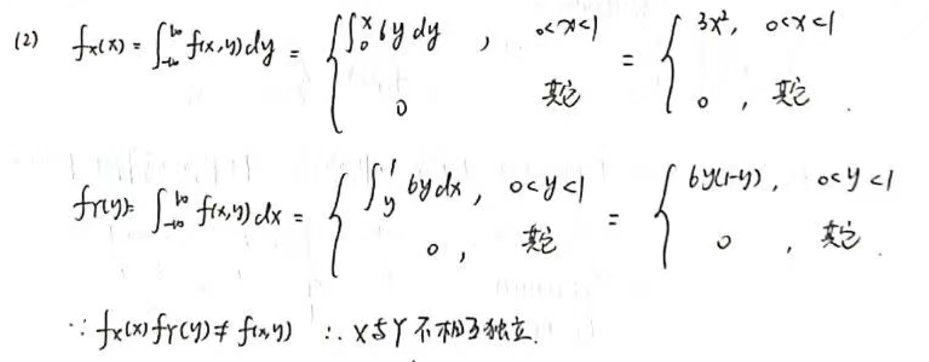 (2) f_X(x) = ∫_{-∞}^{+∞} f(x,y)dy = { ∫_0^x 6y dy , 0<x<1 ; 0 其它 } = { 3x², 0<x<1 ; 0 , 其它 .
f_Y(y) = ∫_{-∞}^{+∞} f(x,y)dx = { ∫_y^1 6y dx , 0<y<1 ; 0 , 其它 } = { 6y(1-y) , 0<y<1 ; 0 , 其它 .
∵ f_X(x) f_Y(y) ≠ f(x,y) ∴ X与Y不相互独立.